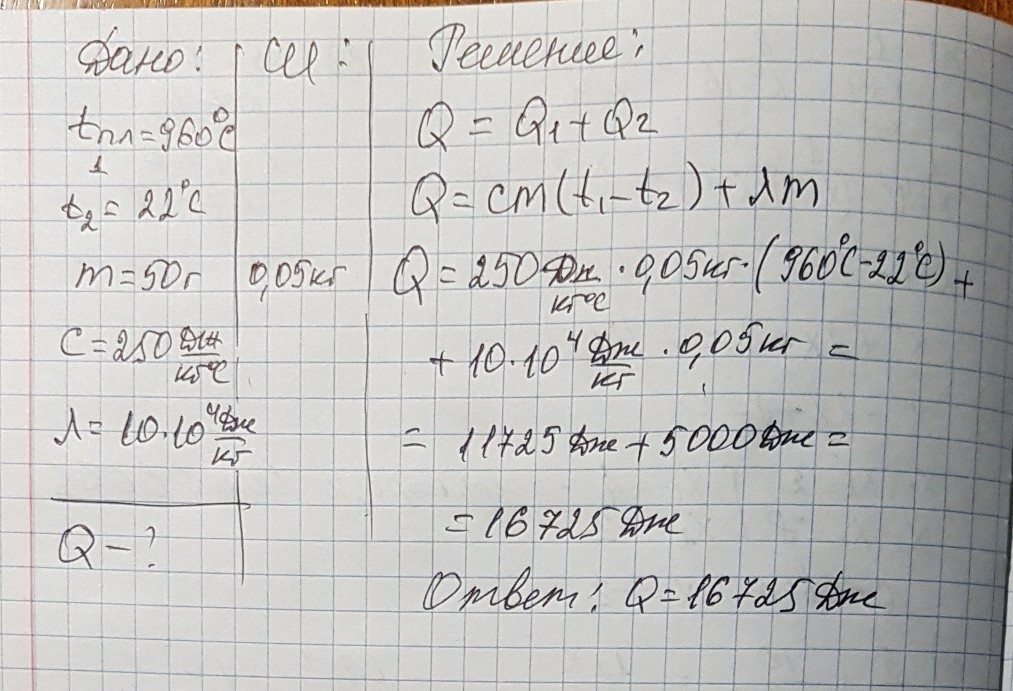 Дано:
СИ:
Решение:
tпл1=960°C
t2=22°C
m=50г
0,05кг
C=250 Дж/кг°C
λ=10·10⁴ Дж/кг
Q-?
Q=Q1+Q2
Q=cm(t1-t2)+λm
Q=250 Дж/кг°C·0,05кг·(960°C-22°C)+
+10·10⁴ Дж/кг·0,05кг=
=11725Дж+5000Дж=
=16725Дж
Ответ: Q=16725Дж